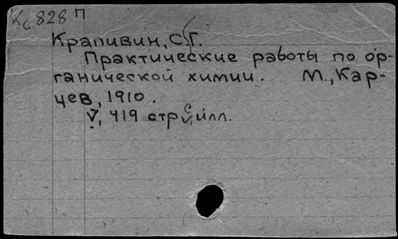 Кс 828 П
Крапивин, С.Г.
Практические работы по ор-
ганической химии. М., Кар-
цев, 1910.
V, 419 стр. с илл.